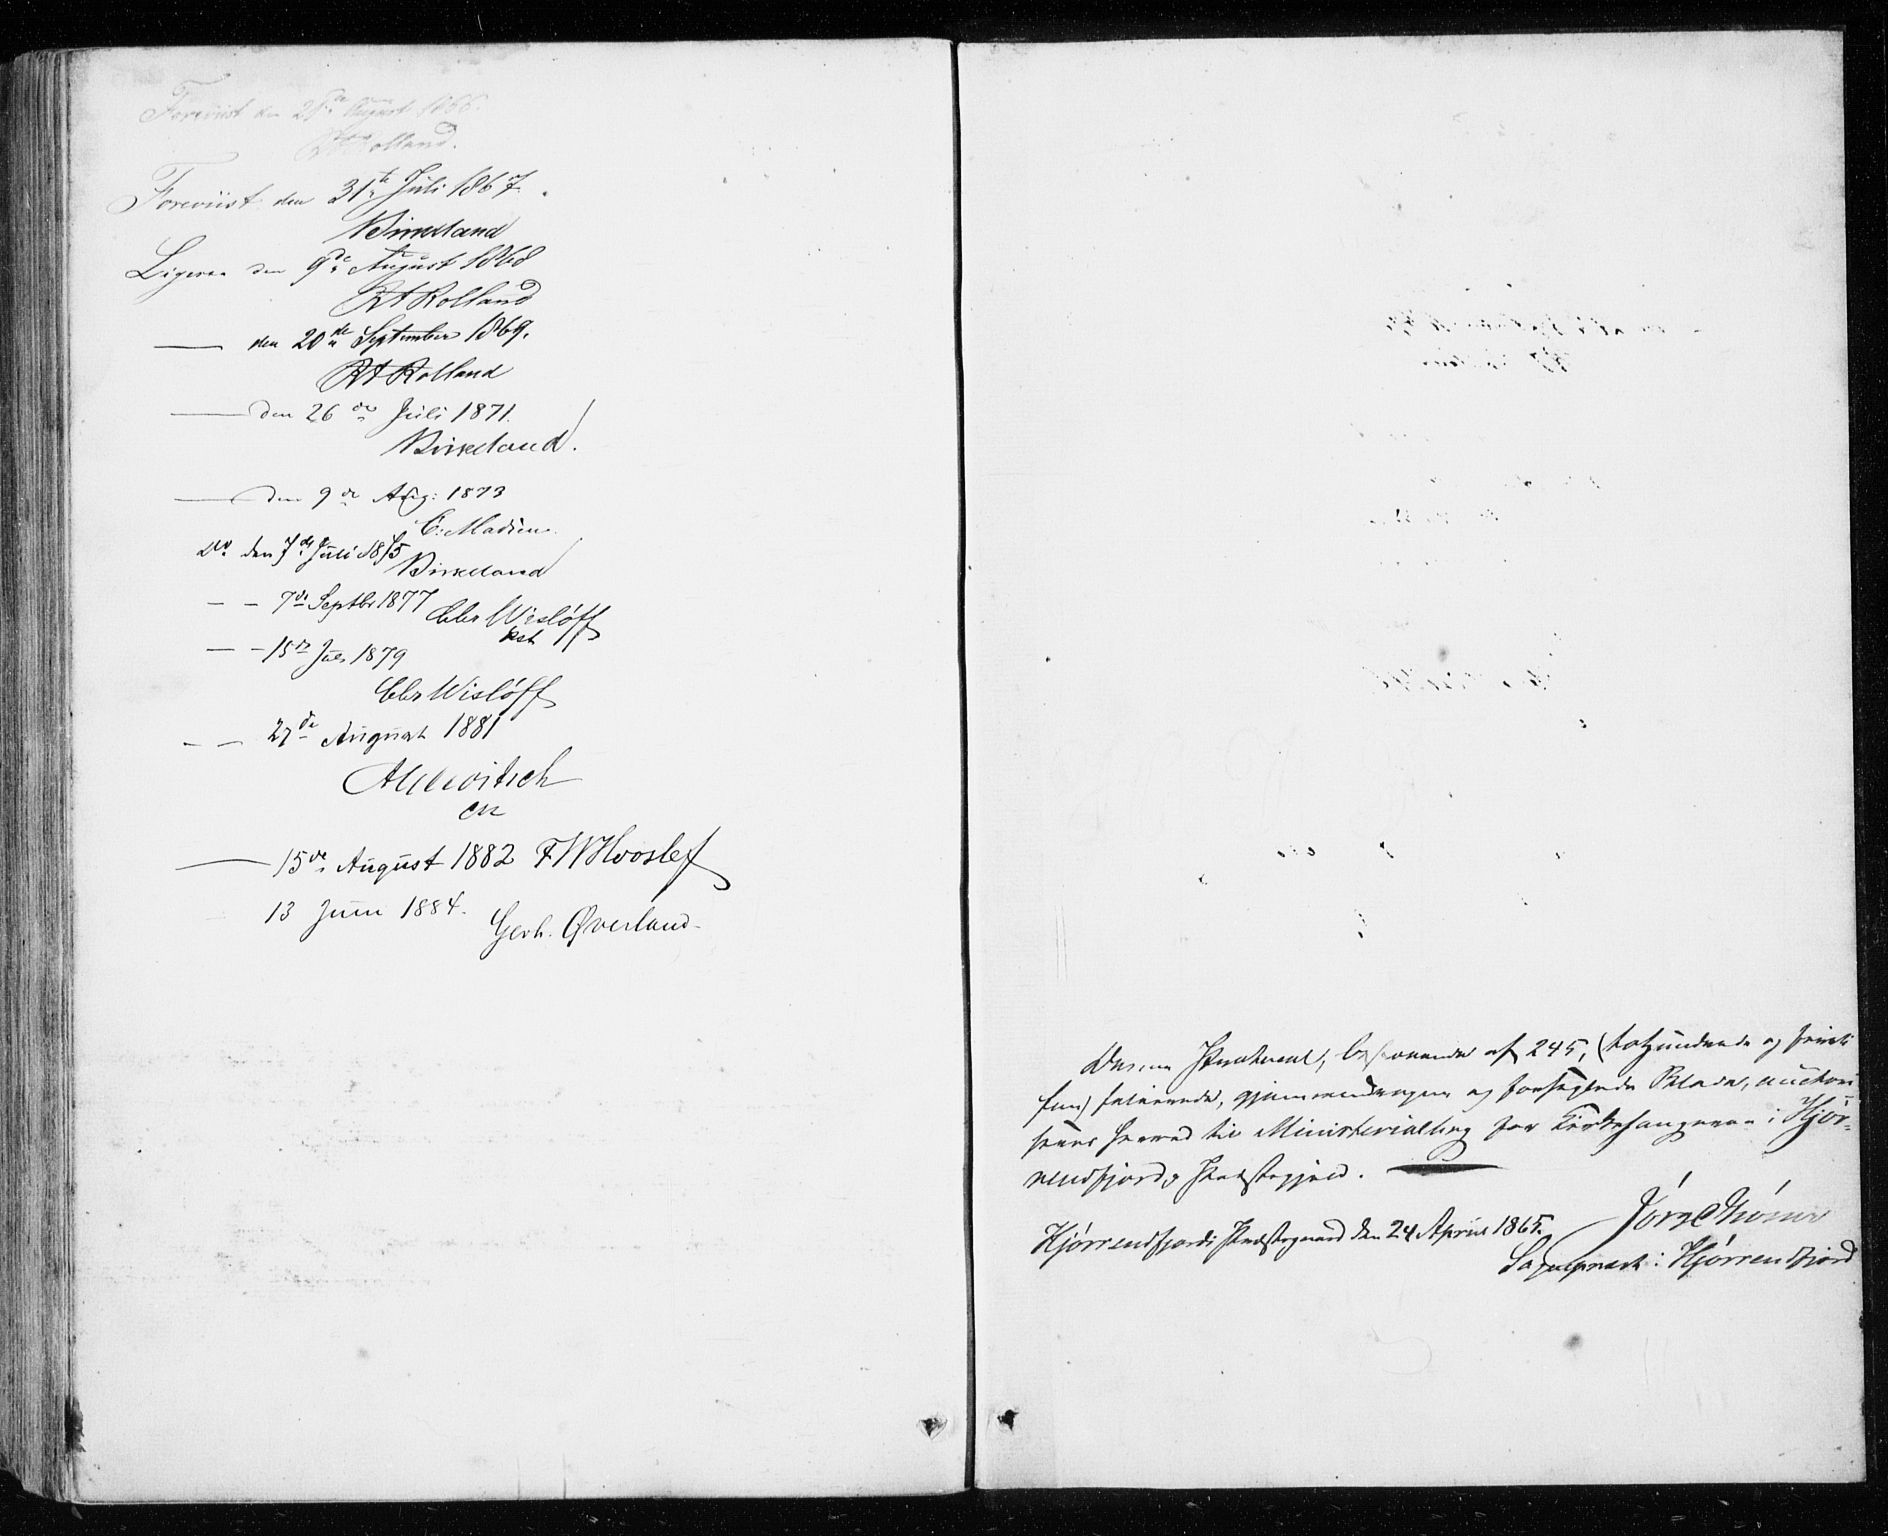 Foreviist den 28de August 1866.
RARolland.
Foreviist den 31te Juli 1867.
Birkeland
Ligesaa den 9de August 1868
RARolland
— den 20de September 1869.
RARolland
— den 26de Juli 1871.
Birkeland.
— den 9de Aug: 1873
C: Madsen
Do. den 7de Juli 1875
Birkeland
— — 7de Septbr 1877 Chr Wisløff
kst
— — 15de 1879
Chr Wisløff
— — 27de August 1881
— 15de August 1882 FWHvoslef
13 Juni 1884. Gerh. Øverland
Denne Protocol, bestaaende af 245, (tohundrede og firti
fem) folierede, gjennemdragne og forseglede Blade, authori-
seres herved til Ministerialbog for Kirkesangeren i Hjør-
rendfjords Præstegjæld.
Hjørrendfjords Præstegaard den 24 April 1865.
Sognepræst i Hjørrendfjord